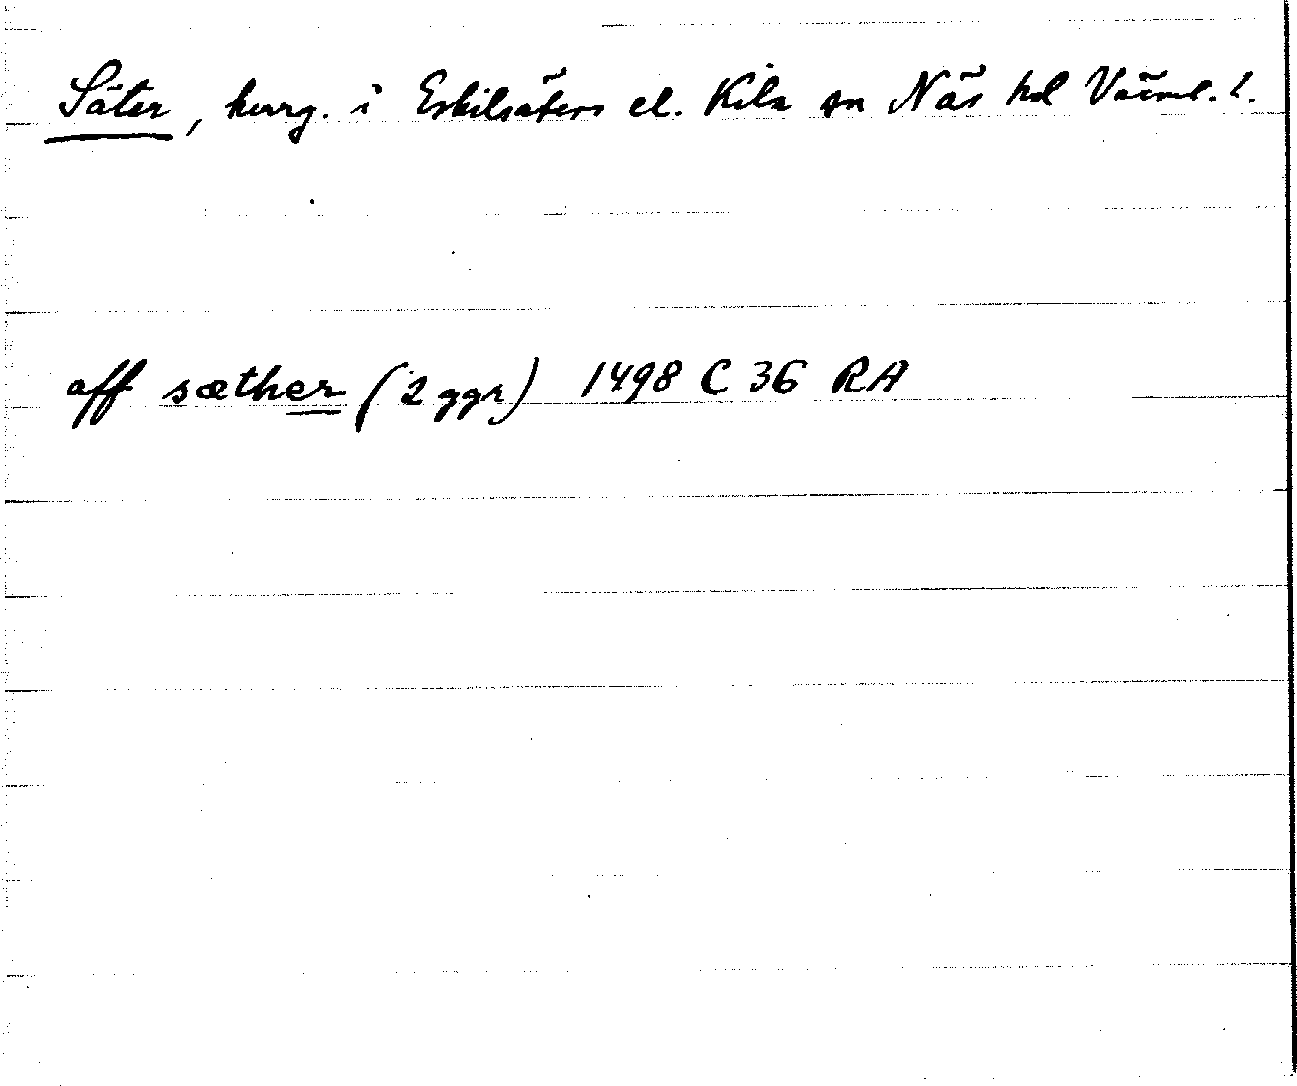 Säter, herrg. i Eskilsäters el. Kila sn Näs hd Värml. l.
aff sæther (2 ggr) 1498 C 36 RA